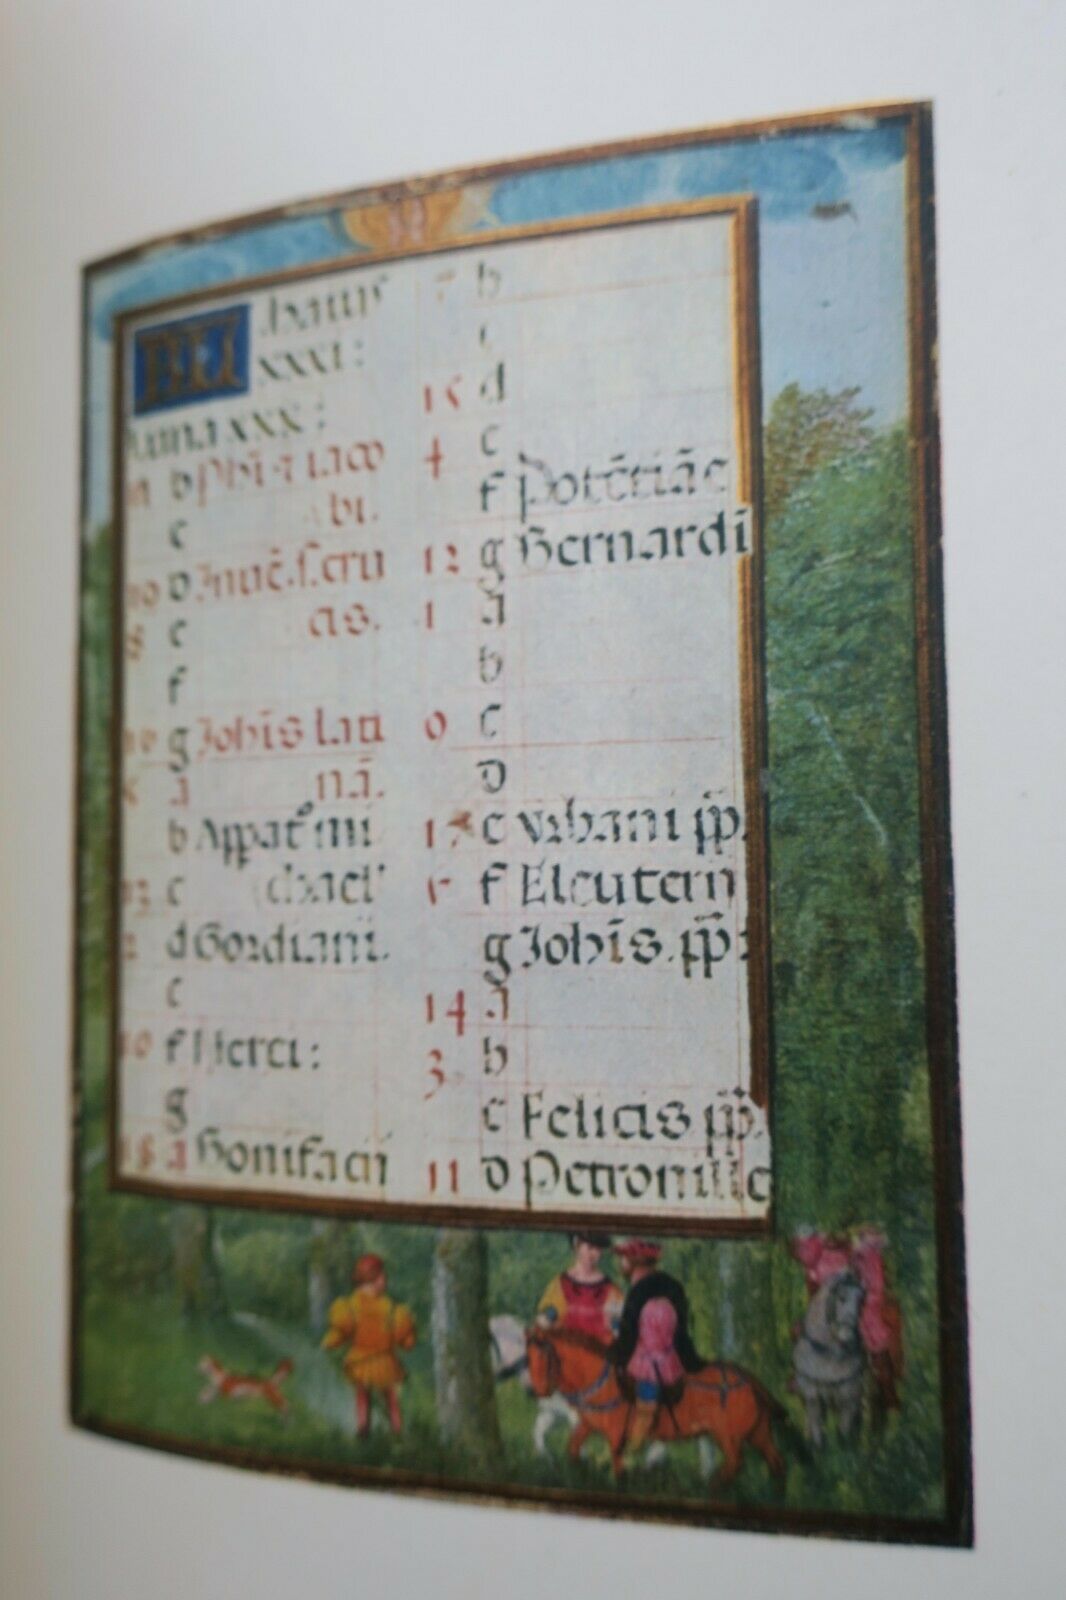 habus
xxxi:
luna xxx:
b Phī. ⁊ iaco
bi.
c
d Inuē. s. cru
cis.
e
f
g Johīs lati
a nā.
b Appat° mi
c chael'
d Gordiani.
e
f Nerei:
g
a Bonifacii
7 b
c
15 d
4 e
f Potētiāe
12 g Bernardī
1 a
b
9 c
d
17 e vrbani pp̄.
6 f Eleuterii
g Johīs. pp̄.
14 a
3 b
c Felicis pp̄.
11 d Petronille